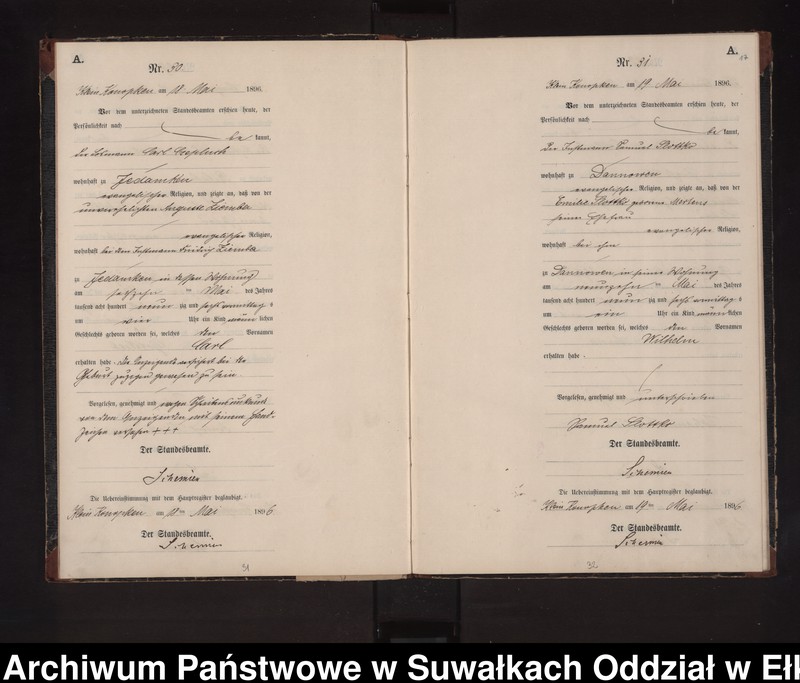 A.
Nr. 30.
Klein Konopken am 18 Mai 1896.
Vor dem unterzeichneten Standesbeamten erschien heute, der
Persönlichkeit nach
be kannt,
der Losmann Carl
wohnhaft zu Jedamken
evangelischer Religion, und zeigte an, daß von der
unverehelichten Auguste Ziemba
evangelischer Religion,
wohnhaft bei dem Instmann Friedrich Ziemba
zu Jedamken in dessen Wohnung
am Mai des Jahres
tausend acht hundert neun zig und sechs Vormittag s
um vier Uhr ein Kind männ lichen
Geschlechts geboren worden sei, welches den Vornamen
Carl
erhalten habe. Der bei der
Geburt zugegen gewesen zu sein.
Vorgelesen, genehmigt und wegen Schreibensunkunde
von dem mit seinem Hand-
zeichen versehen +++
Der Standesbeamte.
Die Uebereinstimmung mit dem Hauptregister beglaubigt.
Klein Konopken am 18ten Mai 1896
Der Standesbeamte.
31
A.
Nr. 31
Klein Konopken am 19 Mai 1896.
Vor dem unterzeichneten Standesbeamten erschien heute, der
Persönlichkeit nach
be kannt,
Der Instmann Samuel Slottko
wohnhaft zu Dannowen
evangelischer Religion, und zeigte an, daß von der
Emilie Slottko geborene Mertens
seiner Ehefrau
evangelischer Religion,
wohnhaft bei ihm
zu Dannowen in seiner Wohnung
am neunzehn ten Mai des Jahres
tausend acht hundert neun zig und sechs Vormittag s
um ein Uhr ein Kind männ lichen
Geschlechts geboren worden sei, welches den Vornamen
Wilhelm
erhalten habe.
Vorgelesen, genehmigt und unterschrieben
Samuel Slottko
Der Standesbeamte.
Die Uebereinstimmung mit dem Hauptregister beglaubigt.
Klein Konopken am 19ten Mai 1896
Der Standesbeamte.
32
Archiwum Państwowe w Suwałkach Oddział w Ełk